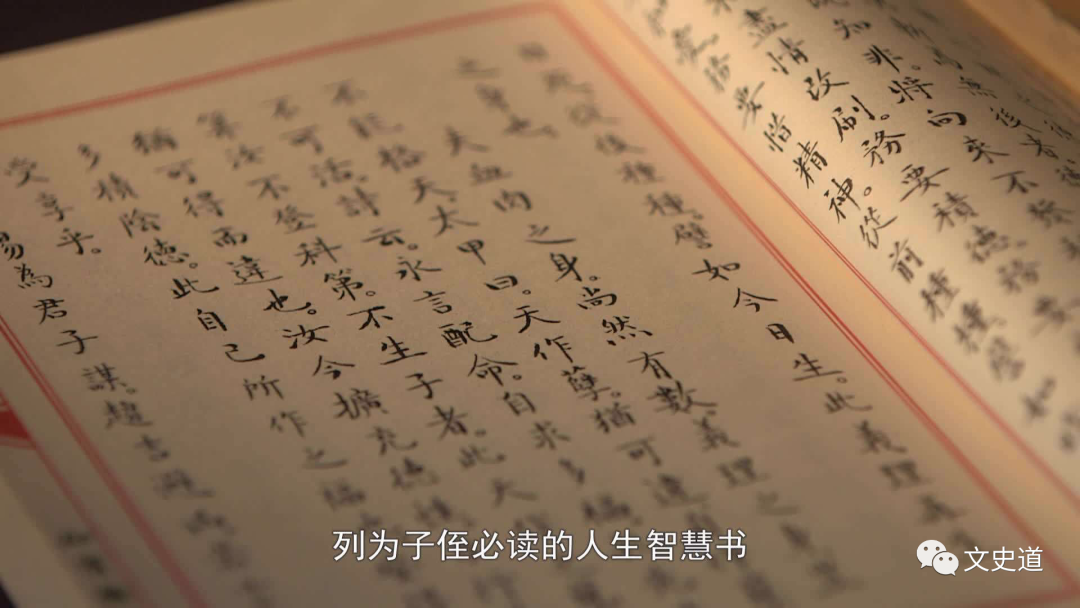 為無後者
知非。將向來不
盡情改刷。務要積德。務要
和愛。務要惜精神。從前種種。譬如
日死。從後種種。譬如今日生。此義理再生
之身也。
夫血肉之身。尚然有數。義理之身豈
不能格天。太甲曰。天作孽。猶可違
不可活。詩云。永言配命。自求多福。
算汝不登科第。不生子者。此天
猶可得而違也。汝今擴充德性
多積陰德。此自己所作之福
受享乎。
易為君子謀。趨吉避凶
列为子侄必读的人生智慧书
文史道